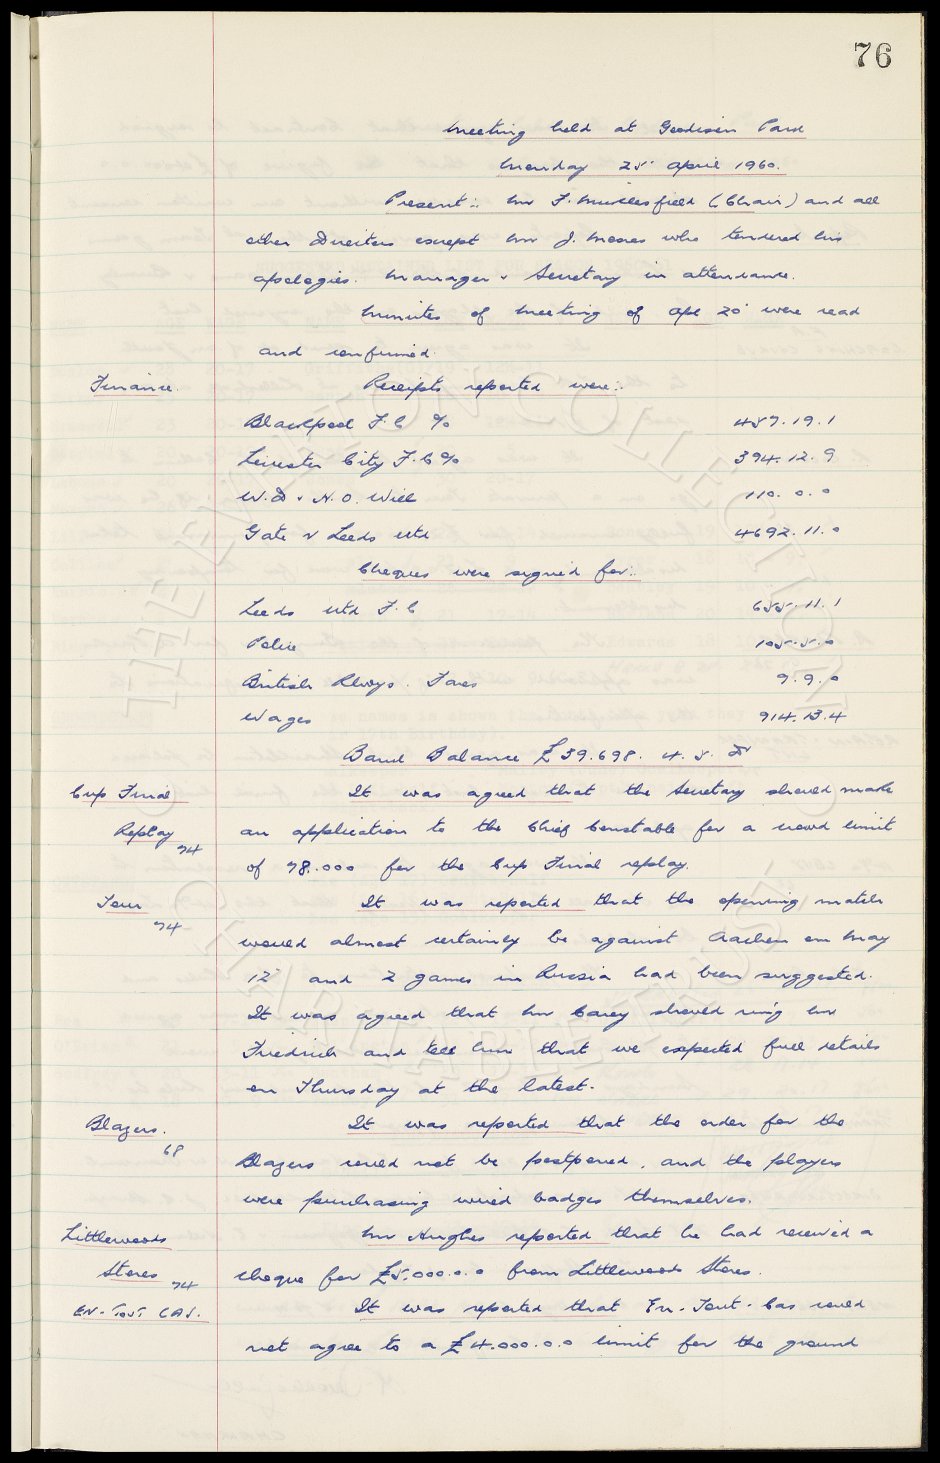 76
Meeting held at Goodison Park
Monday 25' April 1960.
Present:- Mr F. Micklesfield (Chair) and all
other Directors except Mr J. Moores who tendered his
apologies. Manager & Secretary in attendance.
Minutes of Meeting of Apl 20' were read
and confirmed.
Finance. Receipts reported were:-
Blackpool F.C % 457.19.1
Leicester City F.C % 394.12.9
W.D & H.O. Will 110.0.0
Gate v Leeds Utd 4692.11.0
Cheques were signed for:-
Leeds Utd F.C 655.11.1
Police 105.5.0
British Rlwys. Fares 9.9.0
Wages 914.13.4
Bank Balance £39.698.4.5. Dr
Cup Final It was agreed that the Secretary should make
Replay 74 an application to the Chief Constable for a crowd limit
of 78.000 for the Cup Final replay.
Tour 74 It was reported that the opening match
would almost certainly be against Aachen on May
12' and 2 games in Russia had been suggested.
It was agreed that Mr Carey should ring Mr
Friedrich and tell him that we expected full details
on Thursday at the latest.
Blazers. 68 It was reported that the order for the
Blazers could not be postponed, and the players
were purchasing wired badges themselves.
Littlewoods Mr Hughes reported that he had received a
Stores 74 cheque for £5.000.0.0 from Littlewoods Stores.
EN-TOUT CAS. It was reported that En-Tout-Cas could
not agree to a £4.000.0.0 limit for the ground
THE EVERTON COLLECTION
CHARITABLE TRUST